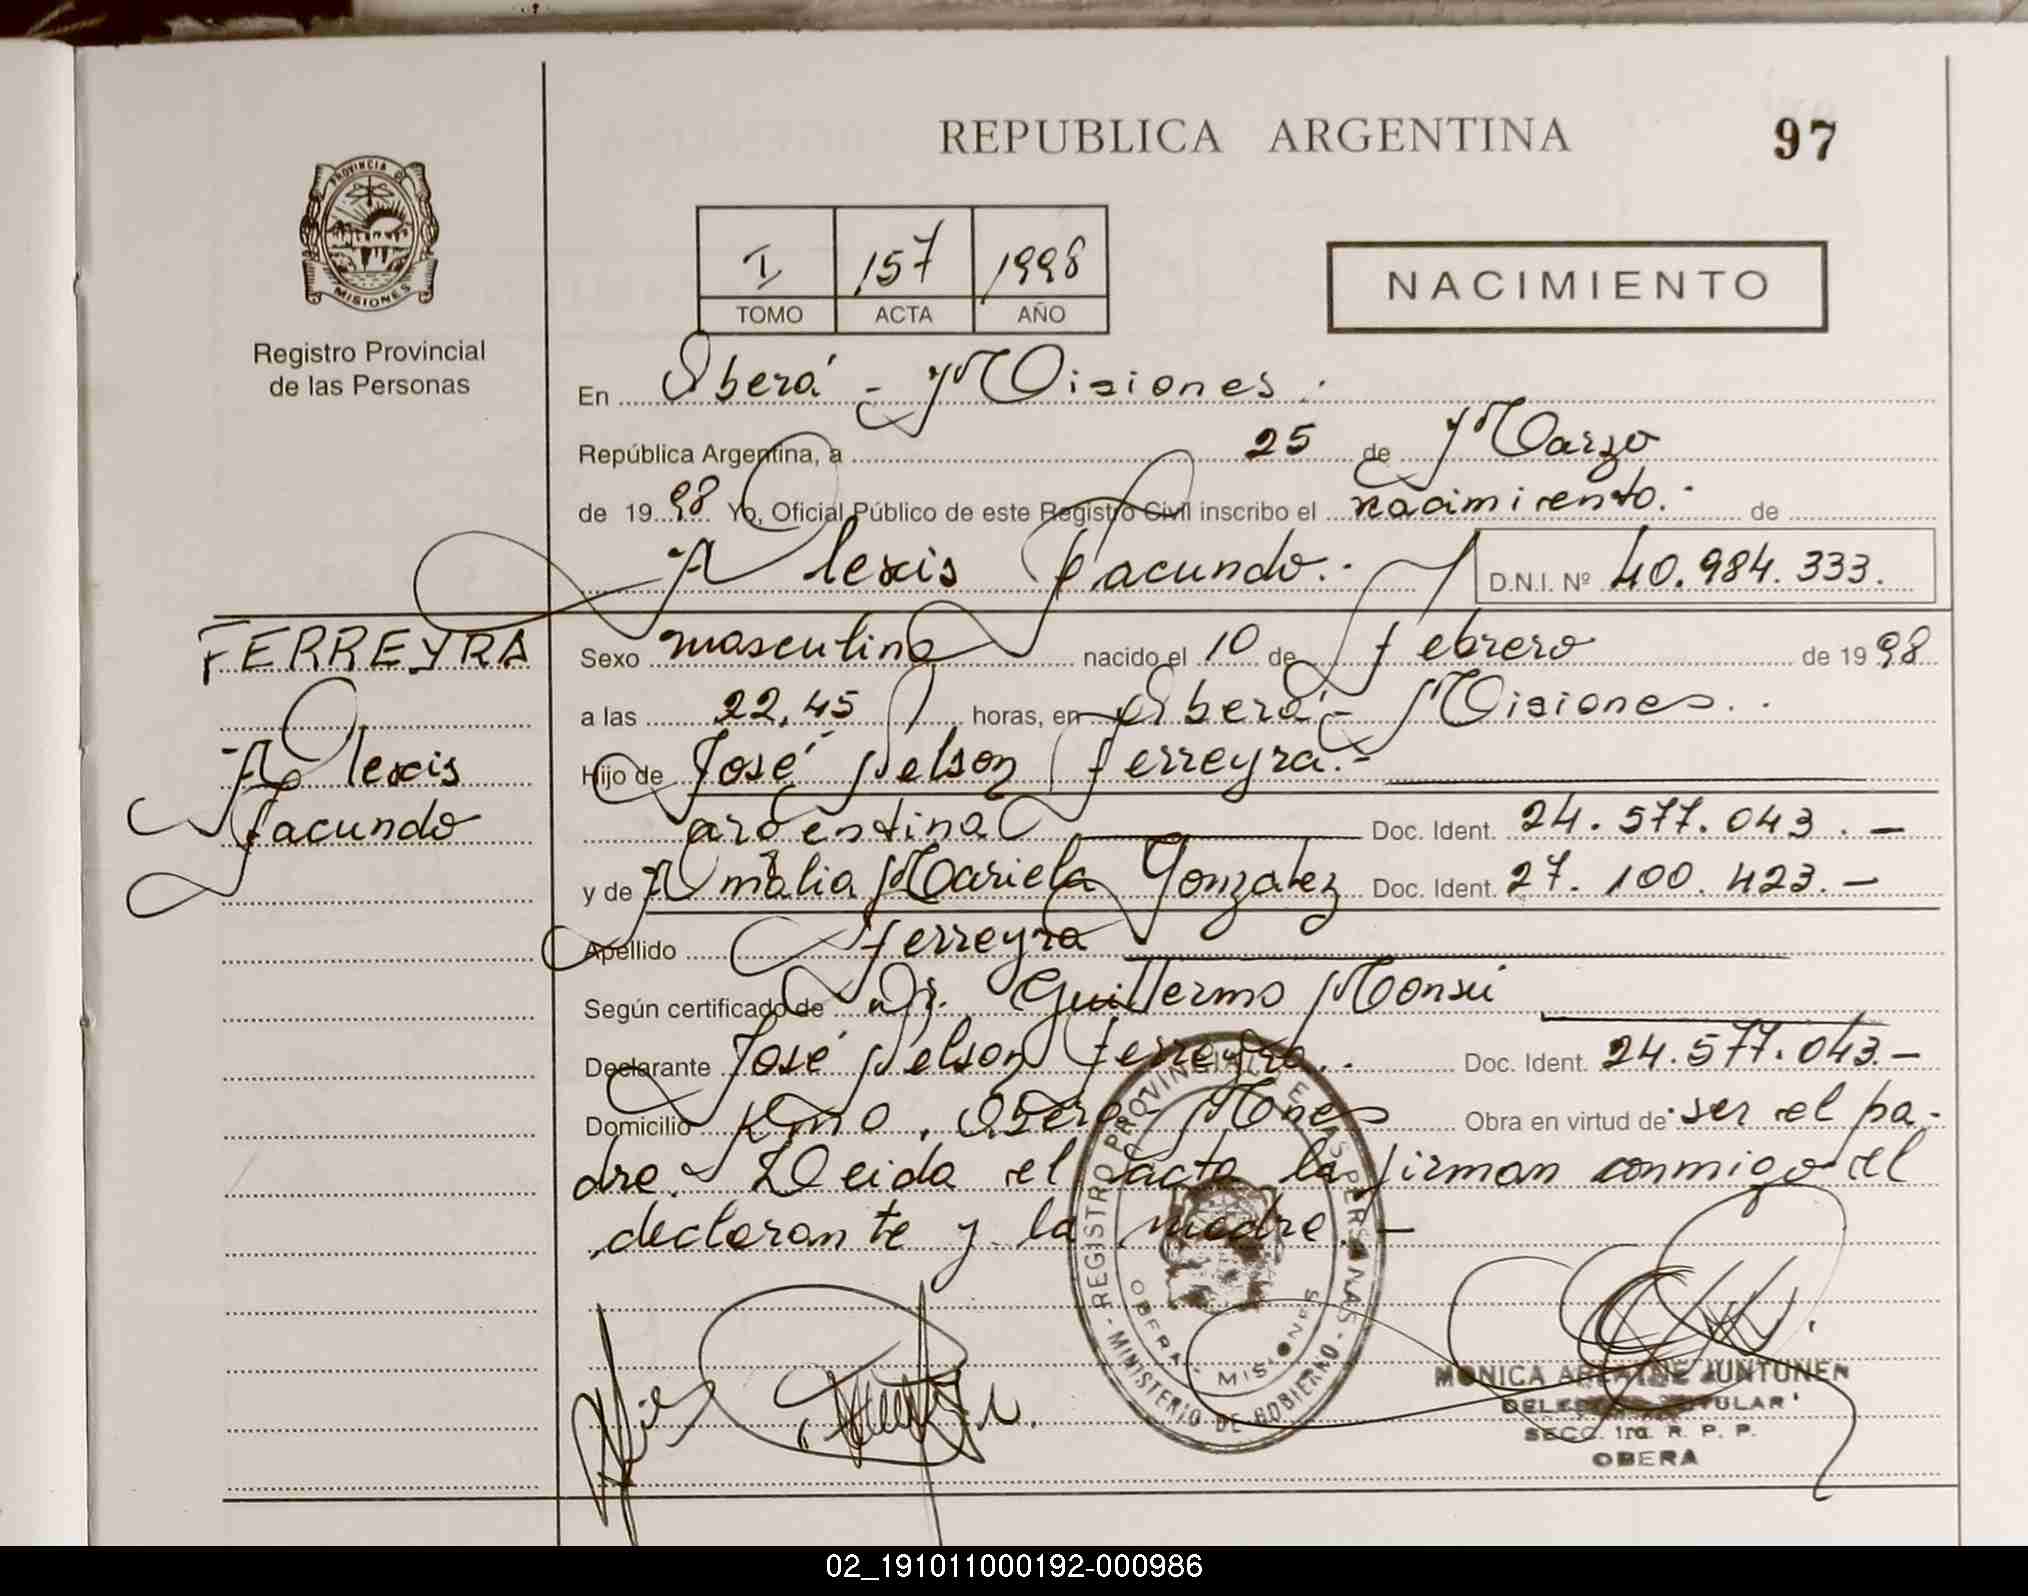 REPUBLICA ARGENTINA
97
PROVINCIA DE
MISIONES
Registro Provincial
de las Personas
I 157 1998
TOMO ACTA AÑO
NACIMIENTO
En Oberá - Misiones.
República Argentina, a 25 de Marzo
de 1998 Yo, Oficial Público de este Registro Civil inscribo el nacimiento.- de
Alexis Facundo.- D.N.I. Nº 40.984.333.
FERREYRA
Alexis
Facundo
Sexo masculino nacido el 10 de febrero de 1998
a las 22,45 horas, en Oberá - Misiones..
Hijo de José Nelson Ferreyra.-
argentina Doc. Ident. 24.577.043.-
y de Amalia Mariela Gonzalez Doc. Ident. 27.100.423.-
Apellido Ferreyra
Según certificado de Dr. Guillermo Monsu
Declarante José Nelson Ferreyra.. Doc. Ident. 24.577.043.-
Domicilio Kmo, Oberá - Mones Obra en virtud de ser el pa-
dre. Leida el acta la firman conmigo el
declarante y la madre.-
REGISTRO PROVINCIAL DE LAS PERSONAS
- MINISTERIO DE GOBIERNO -
OBERA - MISIONES
MONICA JUNTUNEN
TITULAR
SECC. 1ra. R. P. P.
OBERA
02_191011000192-000986